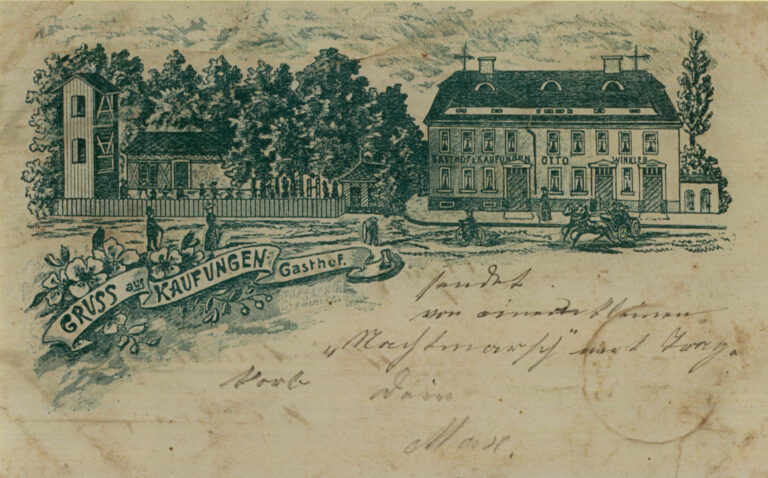 GASTHOF z. KAUFUNGEN OTTO WINKLER
GRUSS aus KAUFUNGEN:
Gasthof.
sendet
von einem kleinen
„Nachtmarsch" mit
Dein
Max.